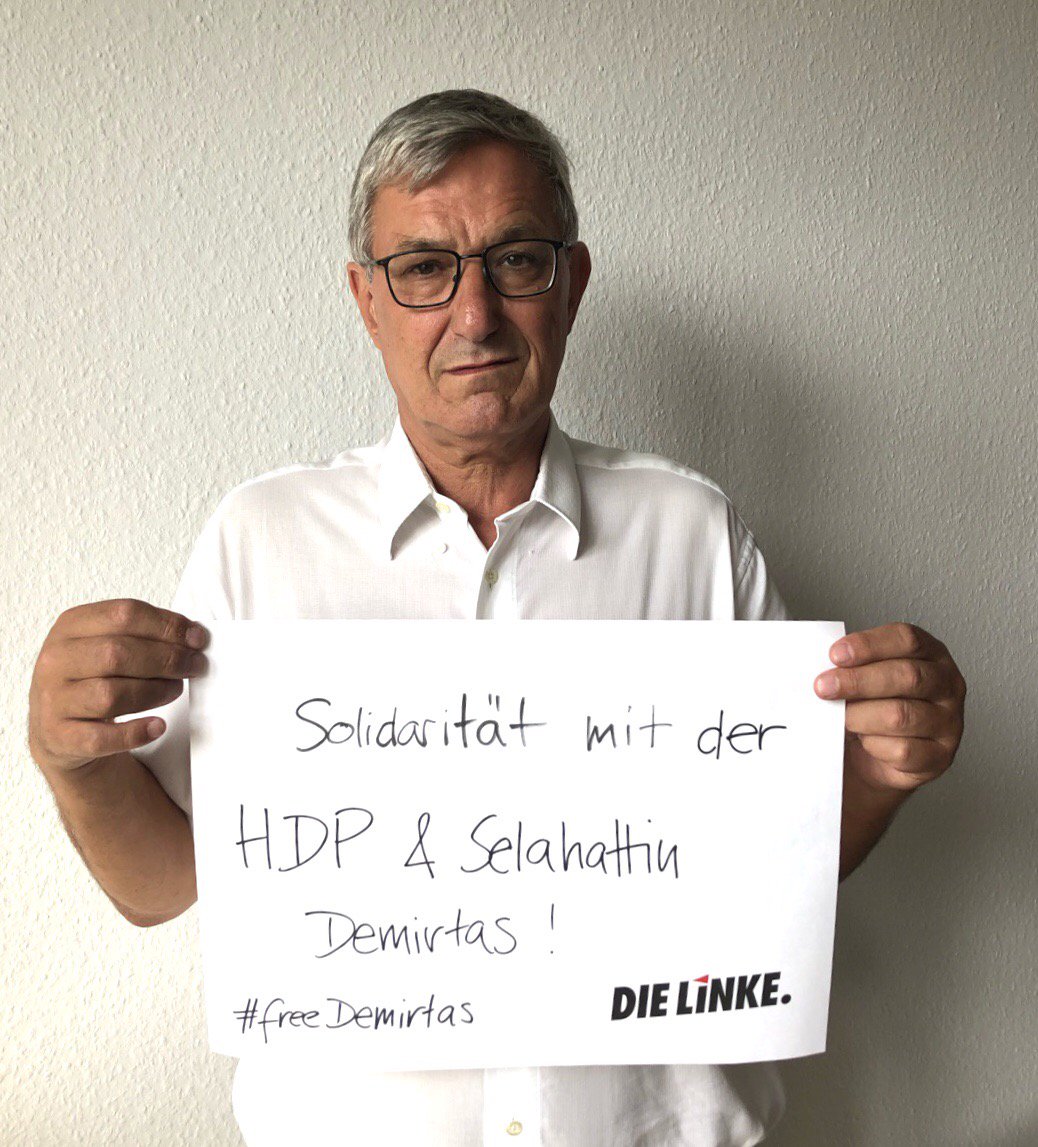 Solidarität mit der
HDP & Selahattin
Demirtas !
#freeDemirtas
DIE LINKE.